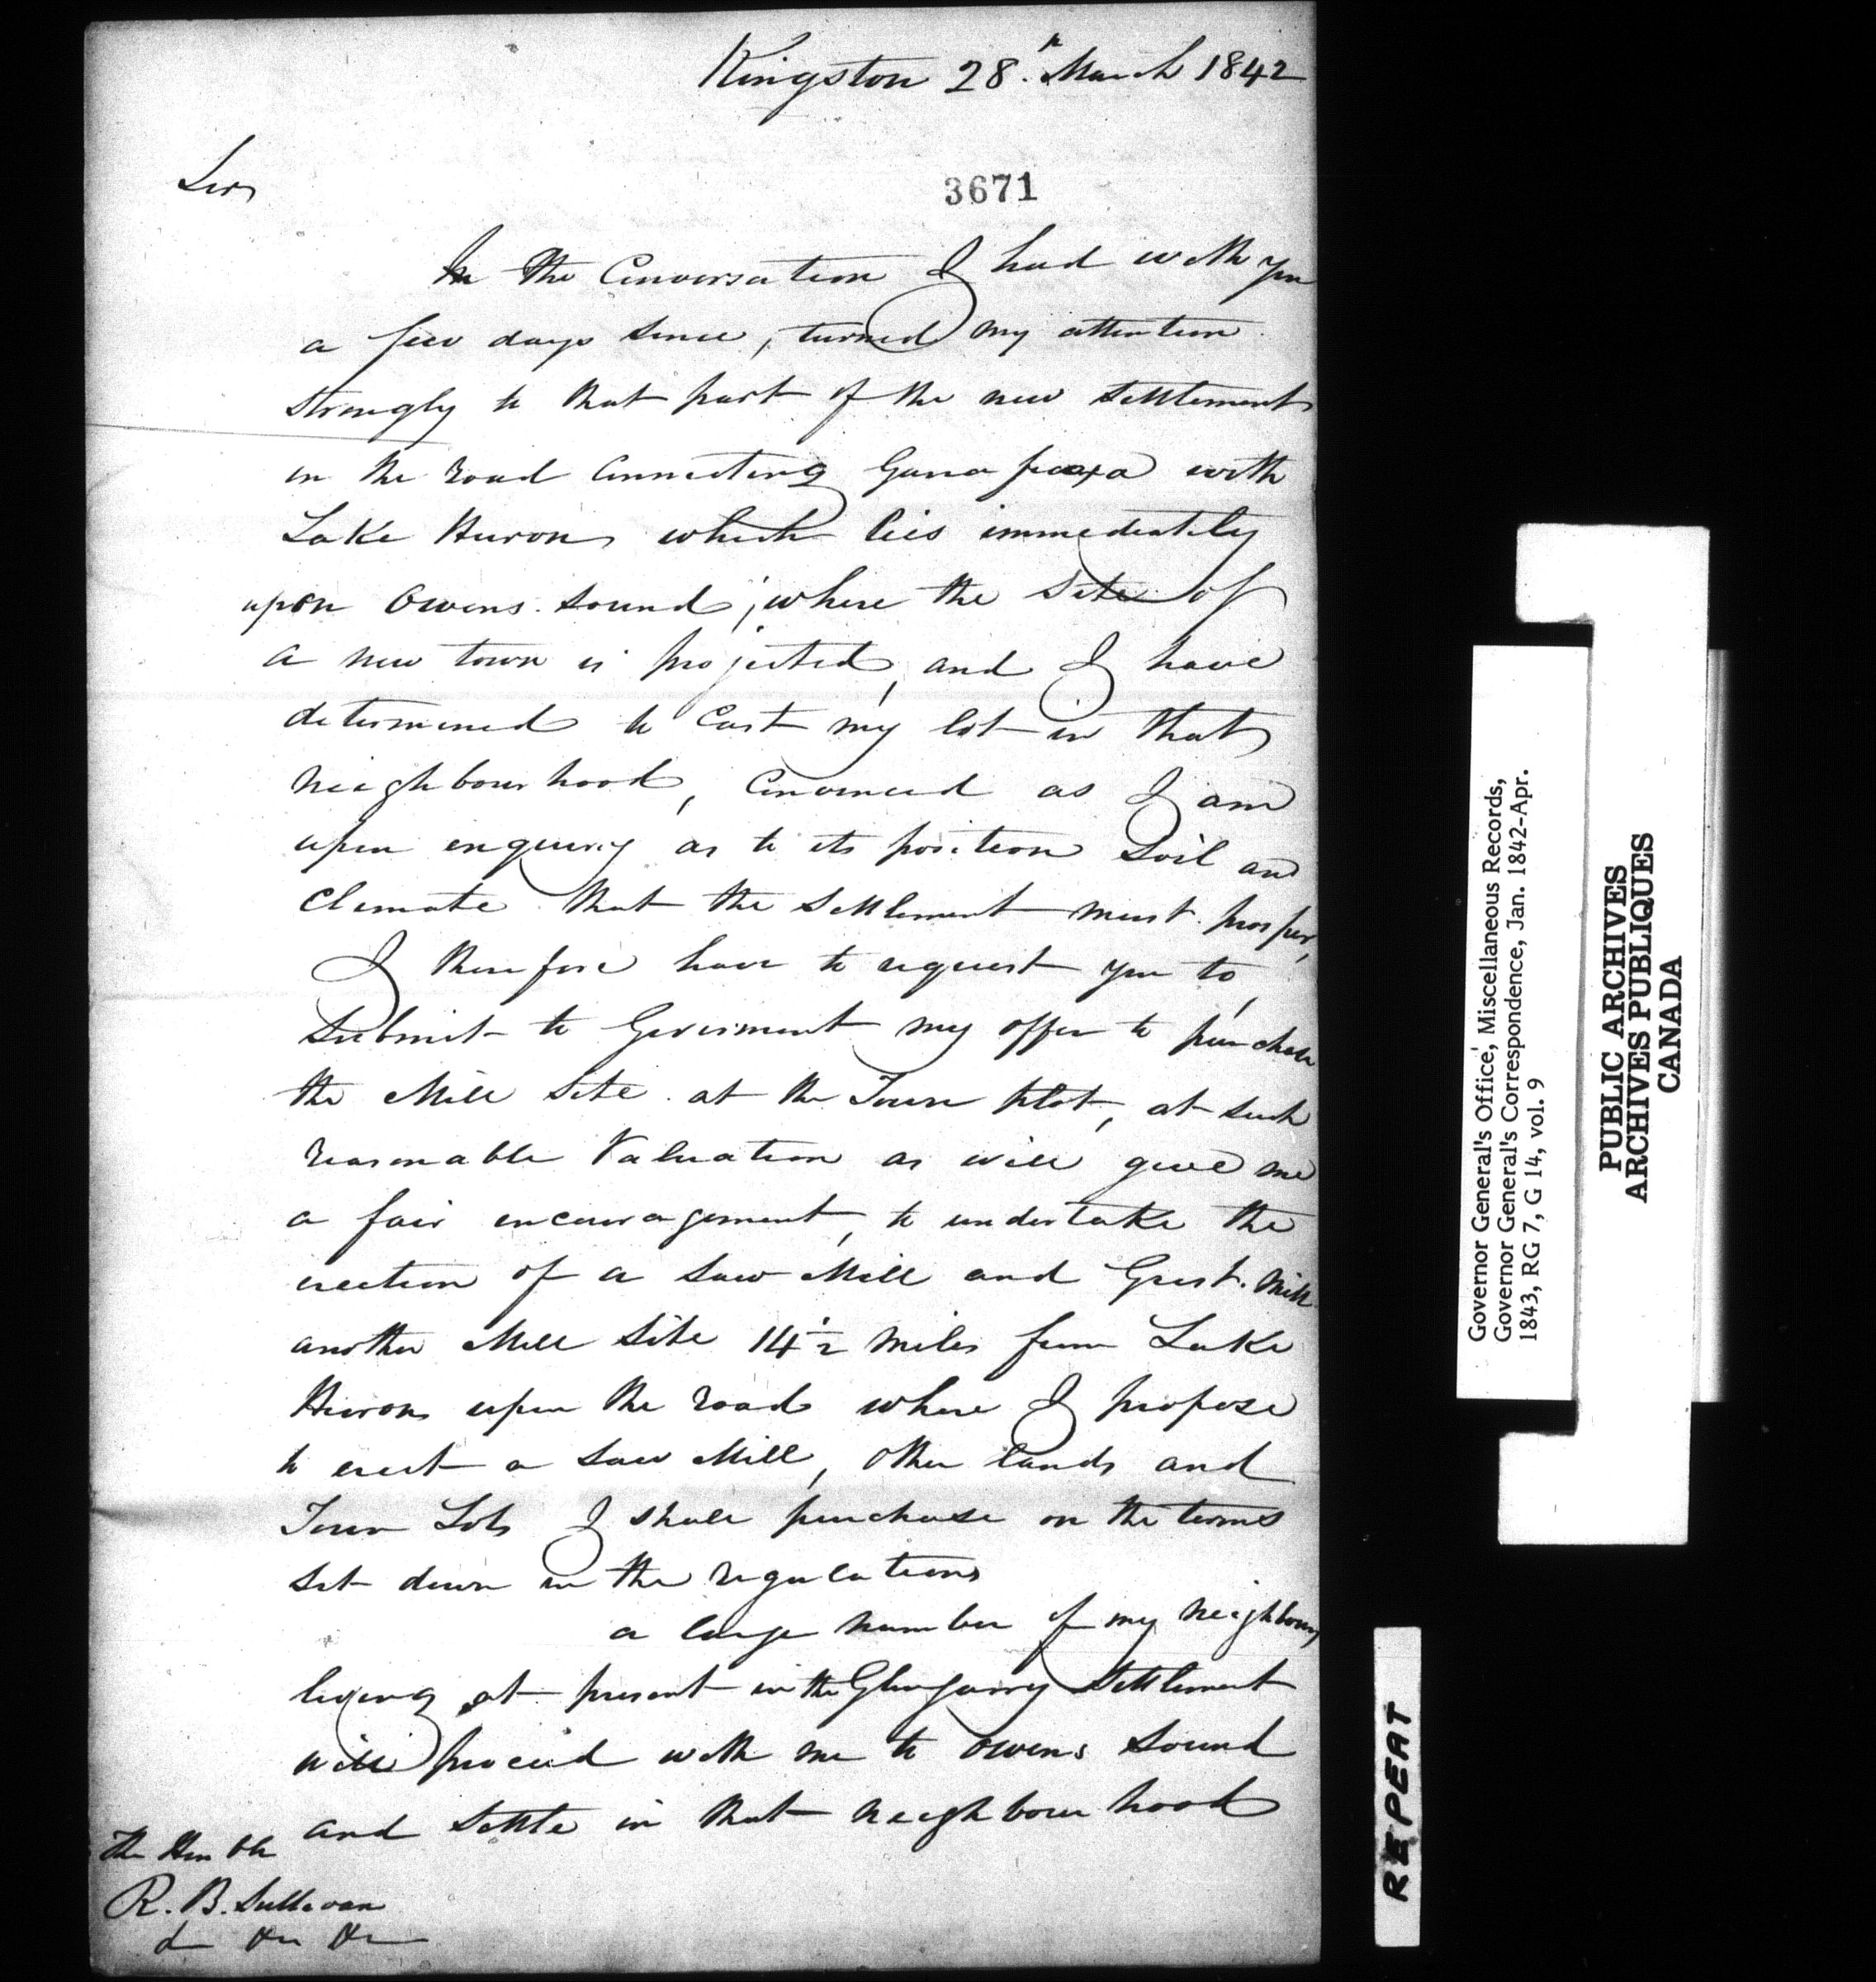 Kingston 28.th March 1842
Sir,
3671
In the Conversation I had with you
a few days since, turned my attention
strongly to that part of the new settlement
in the road Connecting Garrafraxa with
Lake Huron, which lies immediately
upon Owens sound, where the site of
a new town is projected, and I have
determined to Cast my lot in that
neighbourhood, Convinced as I am
upon enquiry as to its position Soil and
Climate that the Settlement must prosper,
I therefore have to request you to,
Submit to Government my offer to purchase
the Mill Site at the Town plot, at such
reasonable Valuation as will give me
a fair encouragement, to undertake the
erection of a Saw Mill and Grist. Mill
another Mill Site 14½ miles from Lake
Huron upon the road where I propose
to erect a Saw Mill, other lands and
Town Lots I shall purchase on the terms
set down in the regulations
a large number of my neighbours
living at present in the Glengarry Settlement
will proceed with me to Owens Sound
and settle in that neighbourhood
The Honble
R. B. Sullivan
Governor General's Office, Miscellaneous Records,
Governor General's Correspondence, Jan. 1842-Apr.
1843, RG 7, G 14, vol. 9
PUBLIC ARCHIVES
ARCHIVES PUBLIQUES
CANADA
REPEAT